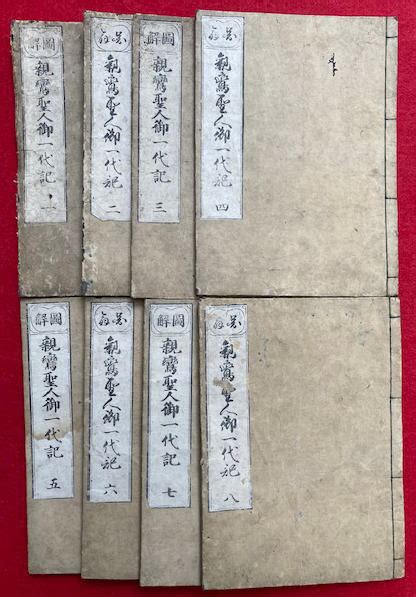 圖解
親鸞聖人御一代記 一
圖解
親鸞聖人御一代記 二
圖解
親鸞聖人御一代記 三
圖解
親鸞聖人御一代記 四
圖解
親鸞聖人御一代記 五
圖解
親鸞聖人御一代記 六
圖解
親鸞聖人御一代記 七
圖解
親鸞聖人御一代記 八